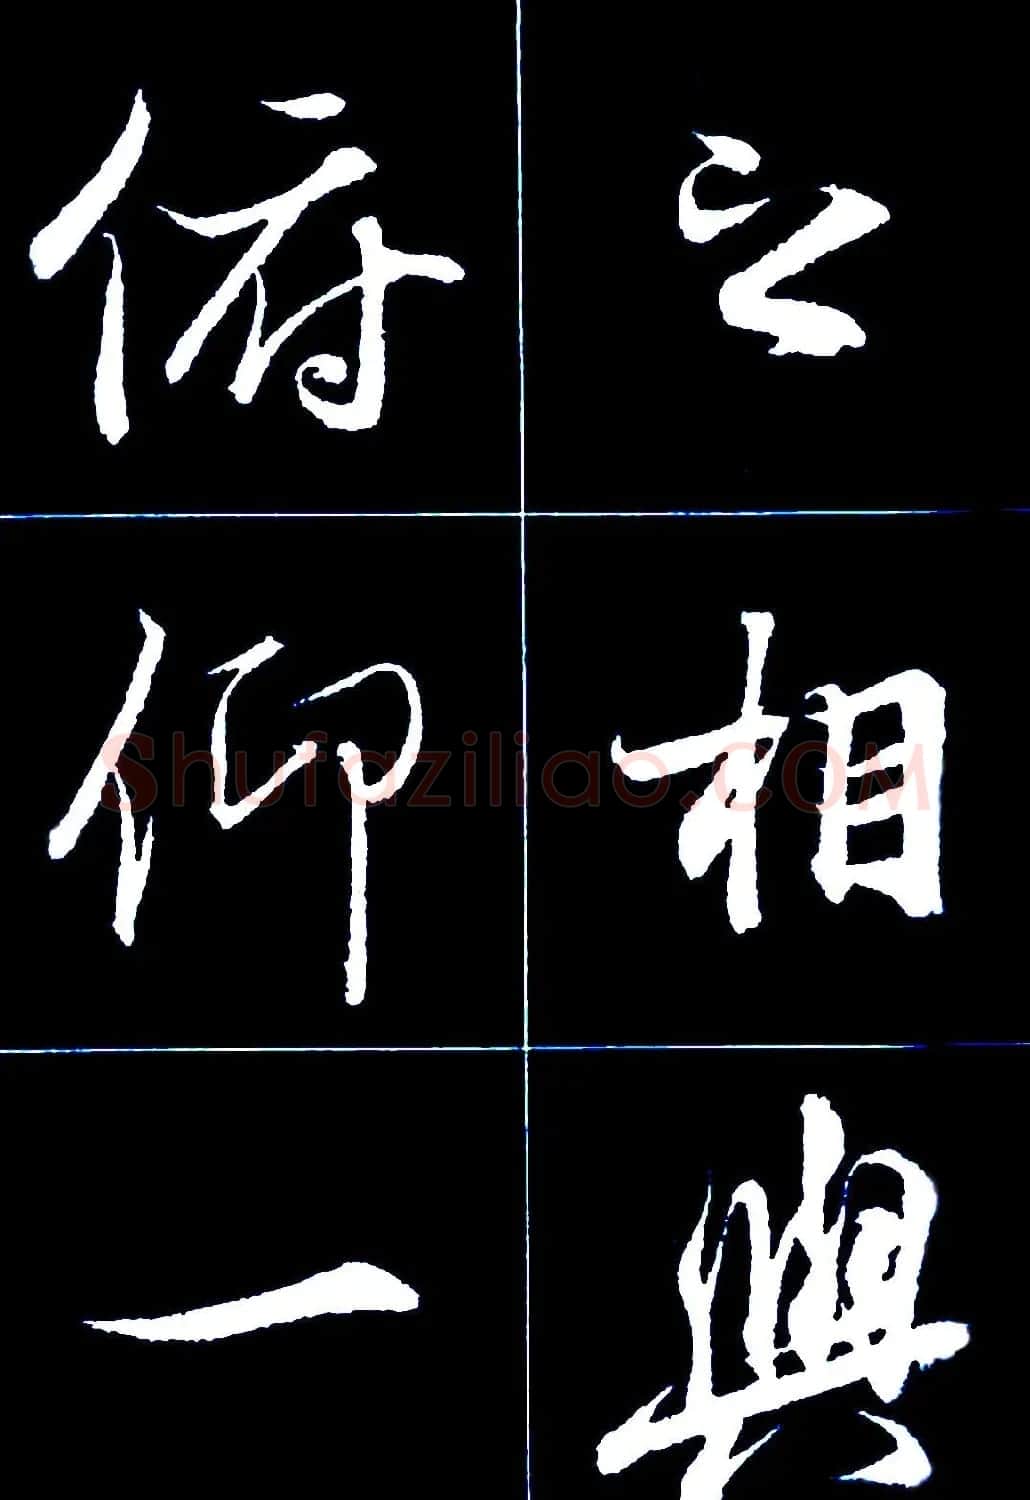 之相與
俯仰一
Shufaziliao.COM